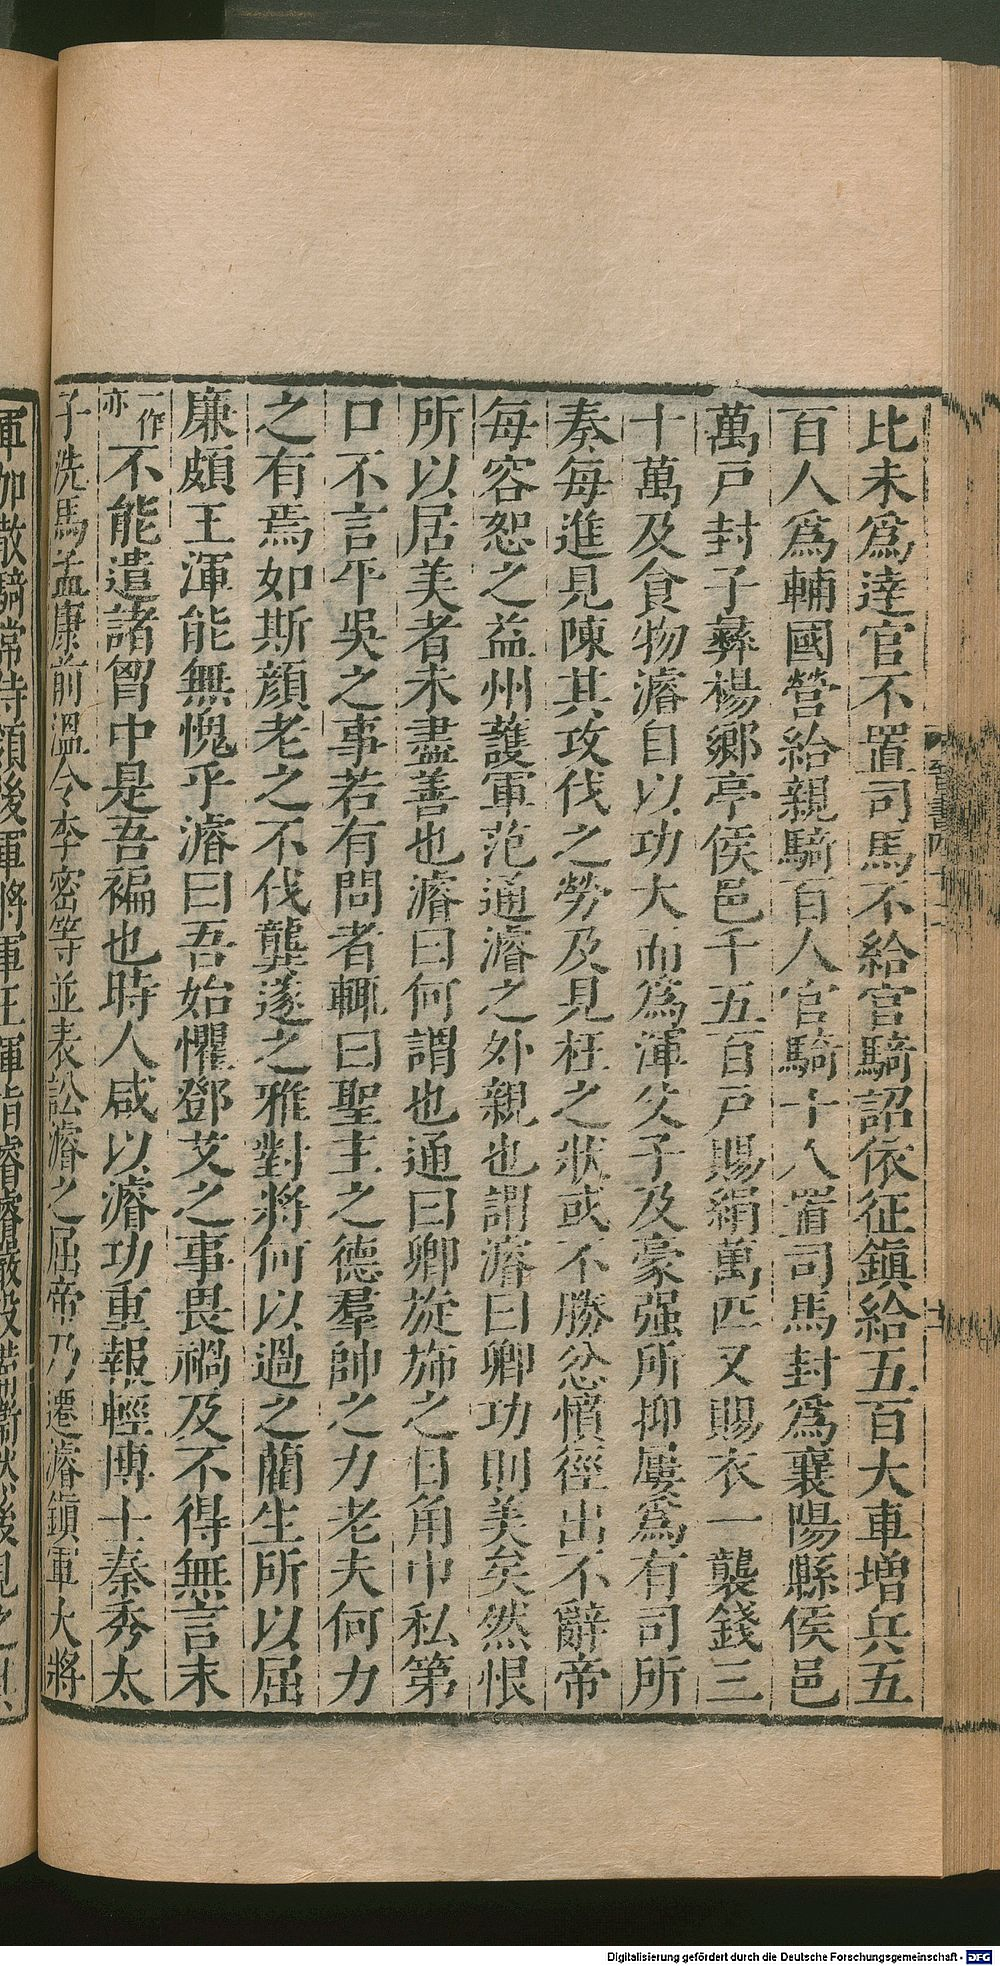 比未爲達官不置司馬不給官騎詔依征鎭給五百大車增兵五
百人爲輔國營給親騎百人官騎十人置司馬封爲襄陽縣侯邑
萬戶封子彝楊鄉亭侯邑千五百戶賜絹萬匹又賜衣一襲錢三
十萬及食物濬自以功大而爲渾父子及豪强所抑屢爲有司所
奏每進見陳其攻伐之勞及見枉之狀或不勝忿憤徑出不辭帝
每容恕之益州護軍范通濬之外親也謂濬曰卿功則美矣然恨
所以居美者未盡善也濬曰何謂也通曰卿旋旆之日角巾私第
口不言平吳之事若有問者輒曰聖主之德羣帥之力老夫何力
之有焉如斯顏老之不伐龔遂之雅對將何以過之藺生所以屈
廉頗王渾能無愧乎濬曰吾始懼鄧艾之事畏禍及不得無言末
一作亦不能遣諸胷中是吾褊也時人咸以濬功重報輕博士秦秀太
子洗馬孟康前溫令李密等並表訟濬之屈帝乃遷濬鎭軍大將
軍加散騎常侍領後軍將軍王渾詣濬濬嚴設備衞然後見之
晉書四十二
Digitalisierung gefördert durch die Deutsche Forschungsgemeinschaft - DFG